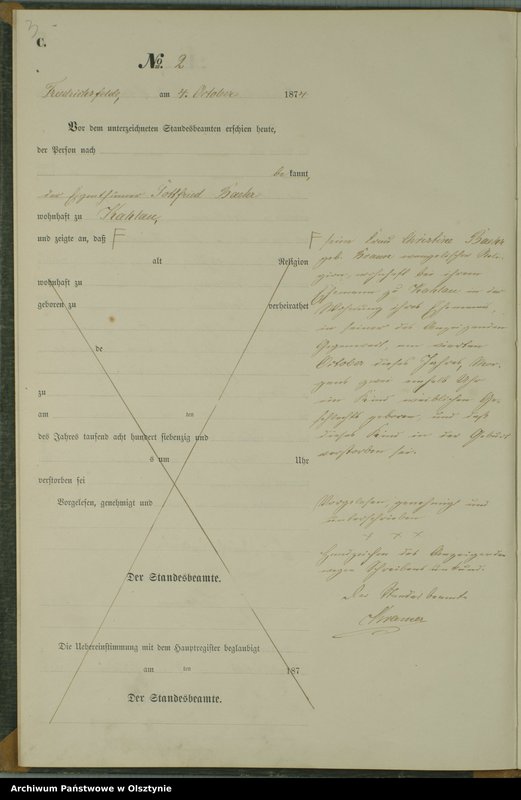 C.
№ 2
Friedrichsfelde, am 4. October 1874
Vor dem unterzeichneten Standesbeamten erschien heute,
der Person nach
be kannt,
der Eigenthümer Gottfried
wohnhaft zu Kahlau,
und zeigte an, daß F
alt Religion
wohnhaft zu
geboren zu verheirathet
de
zu
am ten
des Jahres tausend acht hundert siebenzig und
s um Uhr
verstorben sei
Vorgelesen, genehmigt und
Der Standesbeamte.
Die Uebereinstimmung mit dem Hauptregister beglaubigt
am ten 187
Der Standesbeamte.
F seine Frau
geb. evangelischer Reli-
gion, wohnhaft bei ihrem
Ehemann zu Kahlau in der
Wohnung ihres Ehemannes,
in seiner des Anzeigenden
Gegenwart, am vierten
October dieses Jahres, Mor-
gens Uhr
ein Kind weiblichen Ge-
schlechts geboren und daß
dieses Kind in der Geburt
verstorben sei.
Vorgelesen, genehmigt und
unterschrieben
+ + +
Handzeichen des Anzeigenden
wegen Schreibensunkunde.
Der Standesbeamte
Archiwum Państwowe w Olsztynie